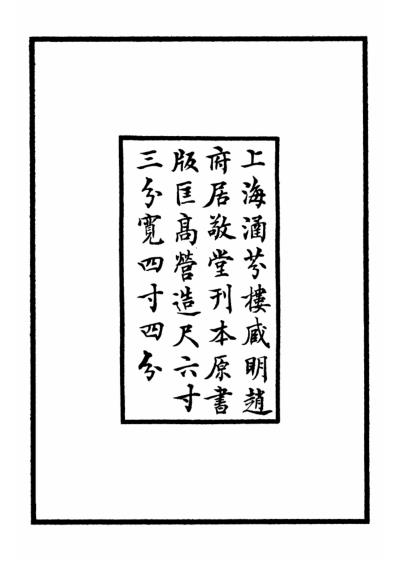 上海涵芬樓咸明趙
府居敬堂刊本原書
版匡高營造尺六寸
三分寬四寸四分